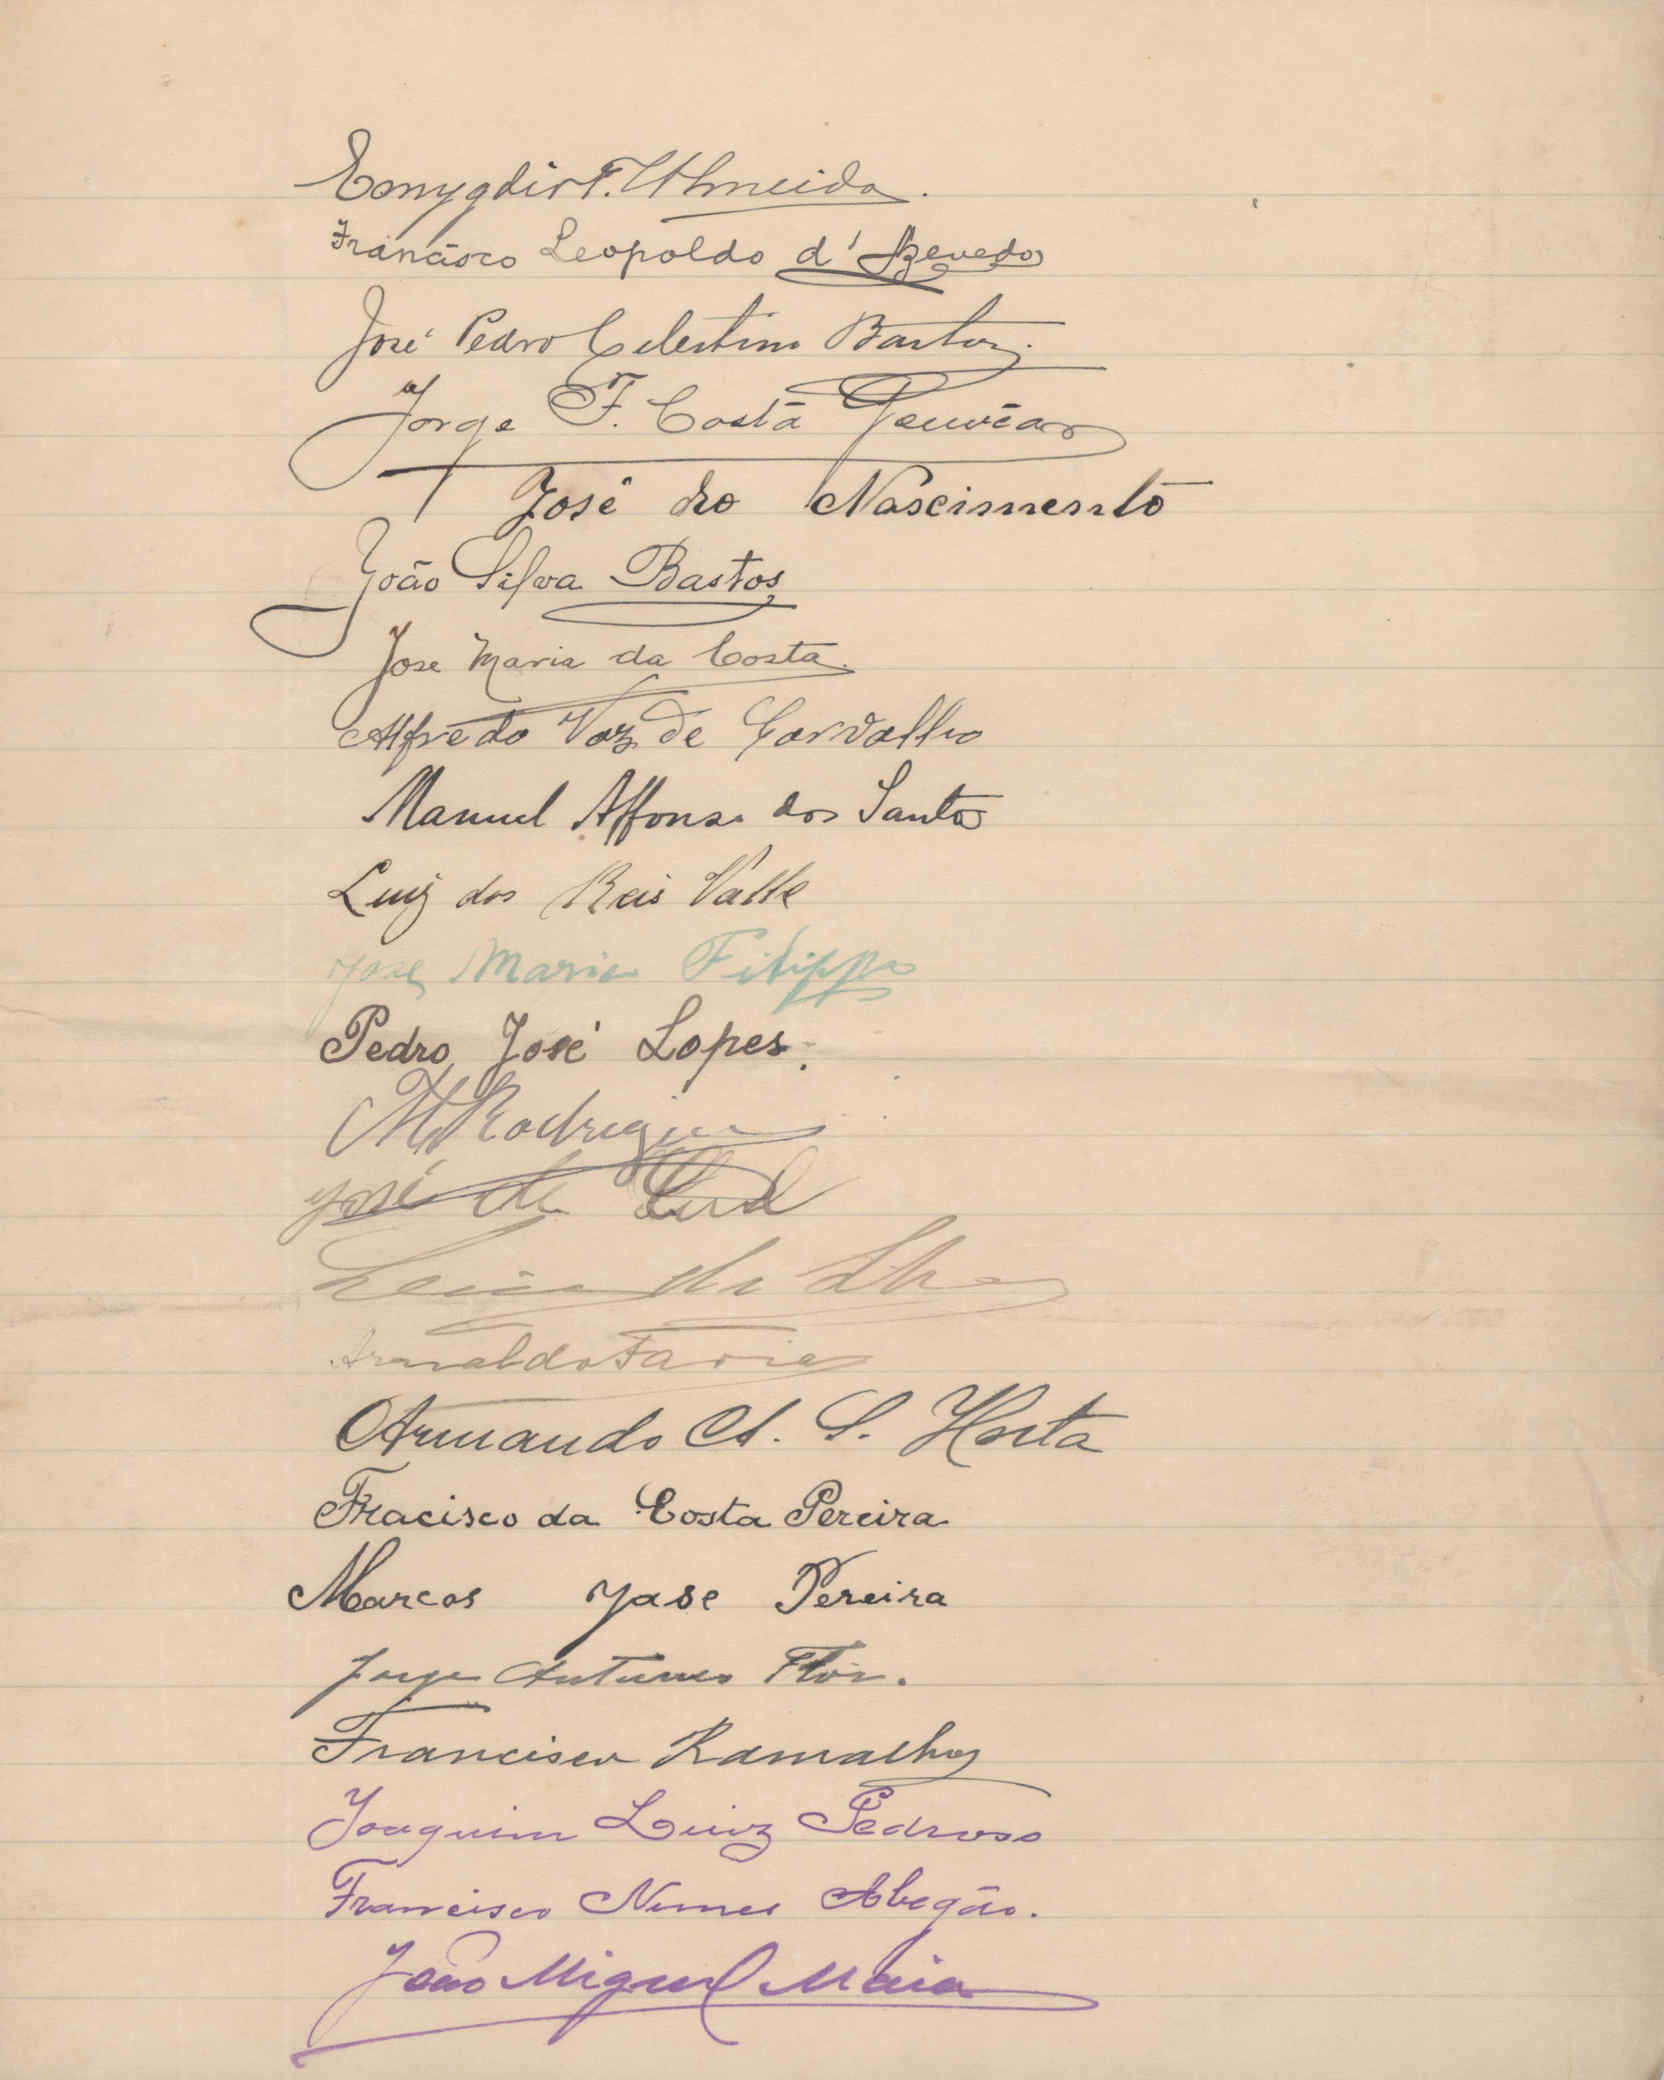 Emygdio F. Almeida.
Francisco Leopoldo d'Azevedo
José Pedro Celestino Bastos
Jorge F. Costa Gouvêa
José do Nascimento
João Silva Bastos
Jose Maria da Costa.
Alfredo Vaz de Carvalho
Manuel Affonso dos Santos
Luiz dos Reis Valle
Jose Maria Filippe
Pedro José Lopes.
M Rodrigues
José da
da
Arnaldo Faria
Armando A. S. Horta
Fracisco da Costa Pereira
Marcos Jose Pereira
Jorge Antunes Flor.
Francisco Ramalho
Joaquim Luiz Pedroso
Francisco Nunes Abegão.
João Miguel Maia